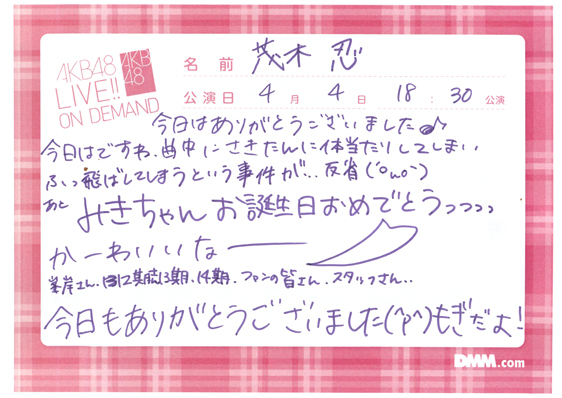 AKB48
LIVE!!
ON DEMAND
AKB
48
名前 茂木 忍
公演日 4月4日 18:30公演
今日はありがとうございました♪
今日はですね、曲中にさきたんに体当たりしてしまい
ふっ飛ばしてしまうという事件が... 反省(´ω`)
あと みきちゃんお誕生日おめでとうっっっ
かーわいいなー
峯岸さん、12期、13期、14期、ファンの皆さん、スタッフさん..
今日もありがとうございました(^p^)もぎだよ!
DMM.com